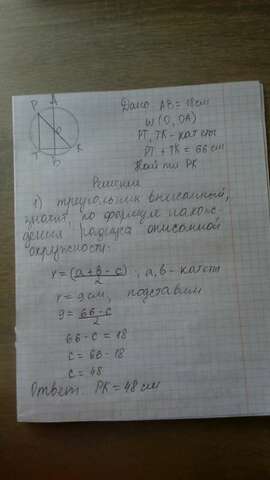 P A
O
T B K
Дано: AB = 18 см
w (O, OA)
PT, TK - катеты
PT + TK = 66 см
Найти PK
Решение
1) треугольник вписанный,
значит, по формуле нахож-
дения радиуса описанной
окружности:
r = (a + b - c)/2 , a, b - катеты
r = 9 см, подставим
9 = 66 - c/2
66 - c = 18
c = 66 - 18
c = 48
Ответ: PK = 48 см